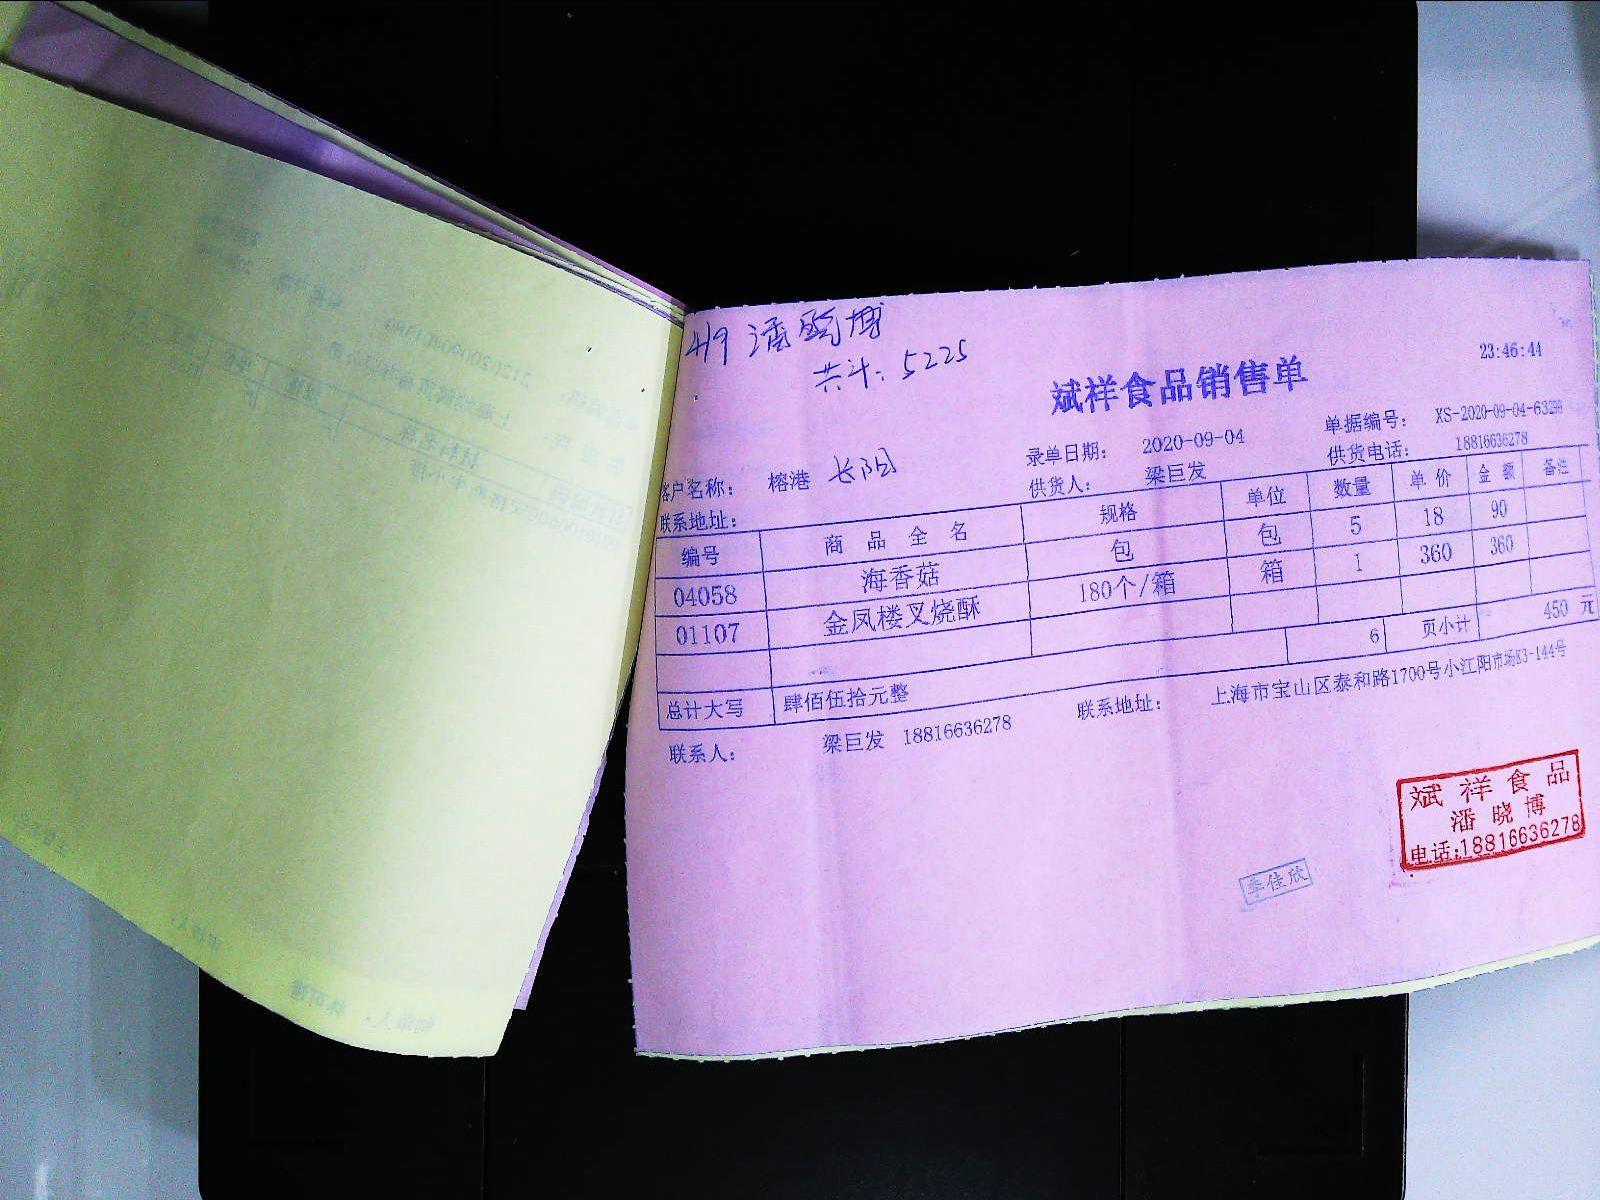 419 潘晓博
共计：5225
23:46:44
斌祥食品销售单
录单日期： 2020-09-04 单据编号： XS-2020-09-04-63299
客户名称： 榕港 长阳 供货人： 梁巨发 供货电话： 18816636278
联系地址：
编号 商品全名 规格 单位 数量 单价 金额 备注
04058 海香菇 包 包 5 18 90
01107 金凤楼叉烧酥 180个/箱 箱 1 360 360
6 页小计 450 元
总计大写 肆佰伍拾元整
联系人： 梁巨发 18816636278 联系地址： 上海市宝山区泰和路1700号小江阳市场K3-144号
斌祥食品
潘晓博
电话:18816636278
季佳欣